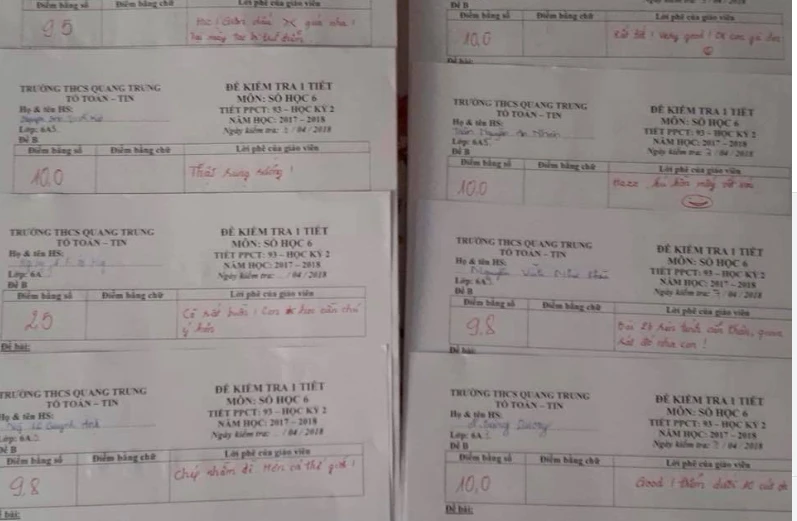 Điểm bằng số Điểm bằng chữ Lời phê của giáo viên
9.5
TRƯỜNG THCS QUANG TRUNG
TỔ TOÁN – TIN
Họ & tên HS:
Lớp: 6A5
Đề B
ĐỀ KIỂM TRA 1 TIẾT
MÔN: SỐ HỌC 6
TIẾT PPCT: 93 – HỌC KỲ 2
NĂM HỌC: 2017 – 2018
Ngày kiểm tra: 2 / 04 / 2018
Điểm bằng số Điểm bằng chữ Lời phê của giáo viên
10.0 Thật sung sướng !
TRƯỜNG THCS QUANG TRUNG
TỔ TOÁN – TIN
Họ & tên HS:
Lớp: 6A
Đề B
ĐỀ KIỂM TRA 1 TIẾT
MÔN: SỐ HỌC 6
TIẾT PPCT: 93 – HỌC KỲ 2
NĂM HỌC: 2017 – 2018
Ngày kiểm tra: / 04 / 2018
Điểm bằng số Điểm bằng chữ Lời phê của giáo viên
2.5 Cô rất buồn ! Con cần chú
ý hơn
Đề bài:
TRƯỜNG THCS QUANG TRUNG
TỔ TOÁN – TIN
Họ & tên HS:
Quỳnh Anh
Lớp: 6A
Đề B
ĐỀ KIỂM TRA 1 TIẾT
MÔN: SỐ HỌC 6
TIẾT PPCT: 93 – HỌC KỲ 2
NĂM HỌC: 2017 – 2018
Ngày kiểm tra: / 04 / 2018
Điểm bằng số Điểm bằng chữ Lời phê của giáo viên
9.8 thế giới !
Đề bài:
Đề B
Điểm bằng số Điểm bằng chữ Lời phê của giáo viên
10.0 Rất tốt ! Very good !
Đề bài:
TRƯỜNG THCS QUANG TRUNG
TỔ TOÁN – TIN
Họ & tên HS:
Trần Nguyễn An Nhiên
Lớp: 6A5
Đề B
ĐỀ KIỂM TRA 1 TIẾT
MÔN: SỐ HỌC 6
TIẾT PPCT: 93 – HỌC KỲ 2
NĂM HỌC: 2017 – 2018
Ngày kiểm tra: / 04 / 2018
Điểm bằng số Điểm bằng chữ Lời phê của giáo viên
10.0
TRƯỜNG THCS QUANG TRUNG
TỔ TOÁN – TIN
Họ & tên HS:
Nguyễn
Lớp: 6A
Đề B
ĐỀ KIỂM TRA 1 TIẾT
MÔN: SỐ HỌC 6
TIẾT PPCT: 93 – HỌC KỲ 2
NĂM HỌC: 2017 – 2018
Ngày kiểm tra: / 04 / 2018
Điểm bằng số Điểm bằng chữ Lời phê của giáo viên
9.8 cẩn thận,
như con !
Đề bài:
TRƯỜNG THCS QUANG TRUNG
TỔ TOÁN – TIN
Họ & tên HS:
Lớp: 6A
Đề B
ĐỀ KIỂM TRA 1 TIẾT
MÔN: SỐ HỌC 6
TIẾT PPCT: 93 – HỌC KỲ 2
NĂM HỌC: 2017 – 2018
Ngày kiểm tra: / 04 / 2018
Điểm bằng số Điểm bằng chữ Lời phê của giáo viên
10.0 Good !
Đề bài: